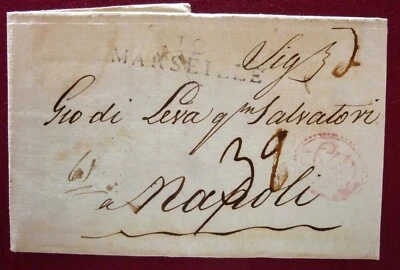 12
MARSEILLE
Sig
Gio di Leva qm Salvatori
39
61
a Napoli